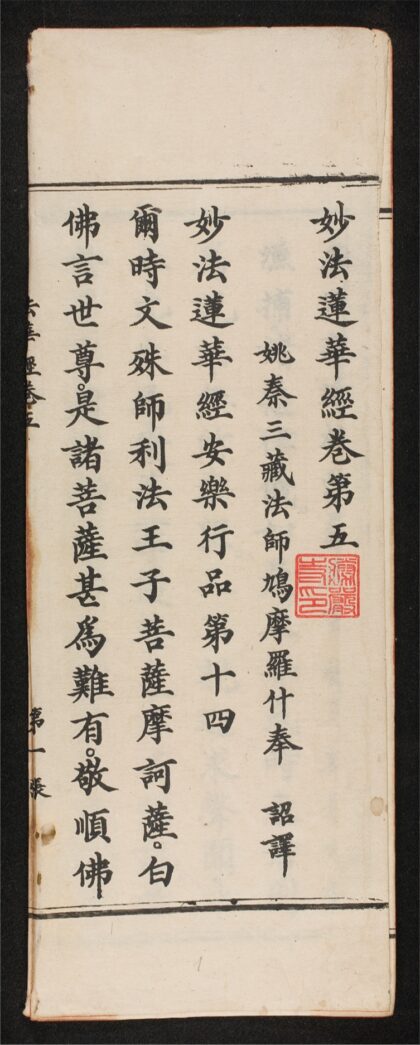 妙法蓮華經卷第五
姚秦三藏法師鳩摩羅什奉　詔譯
妙法蓮華經安樂行品第十四
爾時文殊師利法王子菩薩摩訶薩。白
佛言世尊。是諸菩薩甚爲難有。敬順佛
法華經卷五
第一張